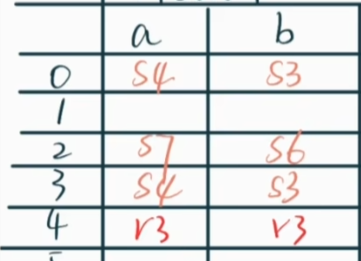 a b
0 S4 S3
1
2 S7 S6
3 S4 S3
4 r3 r3